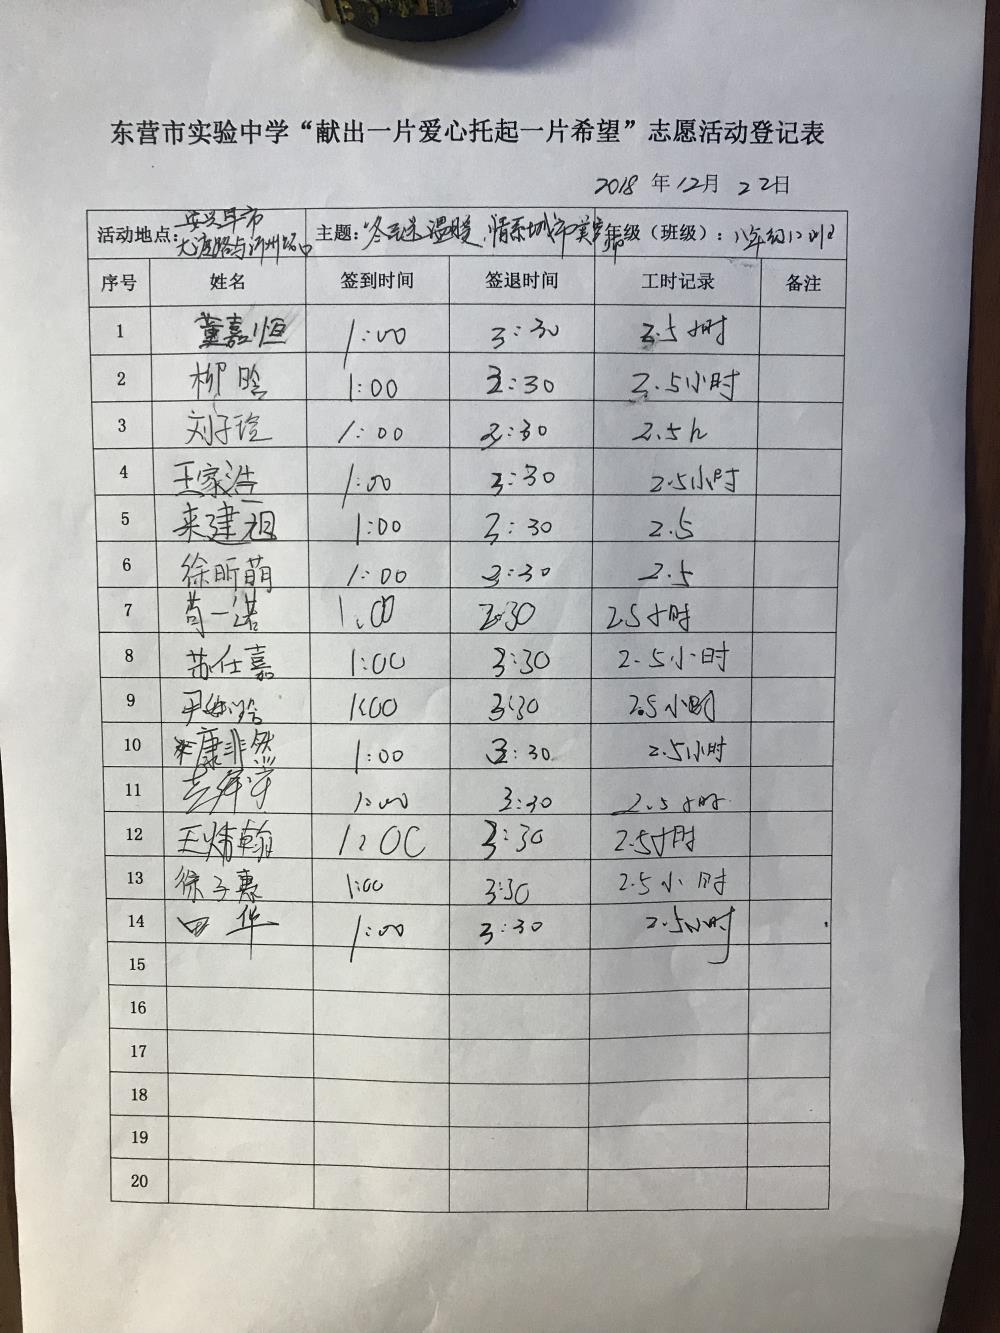 东营市实验中学“献出一片爱心托起一片希望”志愿活动登记表
2018 年 12月 22日
活动地点: 安兴早市 主题: 冬天来温暖,情系城市美容师 年级（班级）: 八年级12班
序号 姓名 签到时间 签退时间 工时记录 备注
1 董嘉恒 1:00 3:30 2.5小时
2 柳晗 1:00 3:30 2.5小时
3 刘子玲 1:00 3:30 2.5h
4 王家浩 1:00 3:30 2.5小时
5 来建祖 1:00 3:30 2.5
6 徐昕萌 1:00 3:30 2.5
7 苟一诺 1:00 3:30 2.5小时
8 苏仕嘉 1:00 3:30 2.5小时
9 1:00 3:30 2.5小时
10 康非然 1:00 3:30 2.5小时
11 1:00 3:30 2.5小时
12 王炜翰 1:00 3:30 2.5小时
13 徐子惠 1:00 3:30 2.5小时
14 田华 1:00 3:30 2.5小时
15
16
17
18
19
20